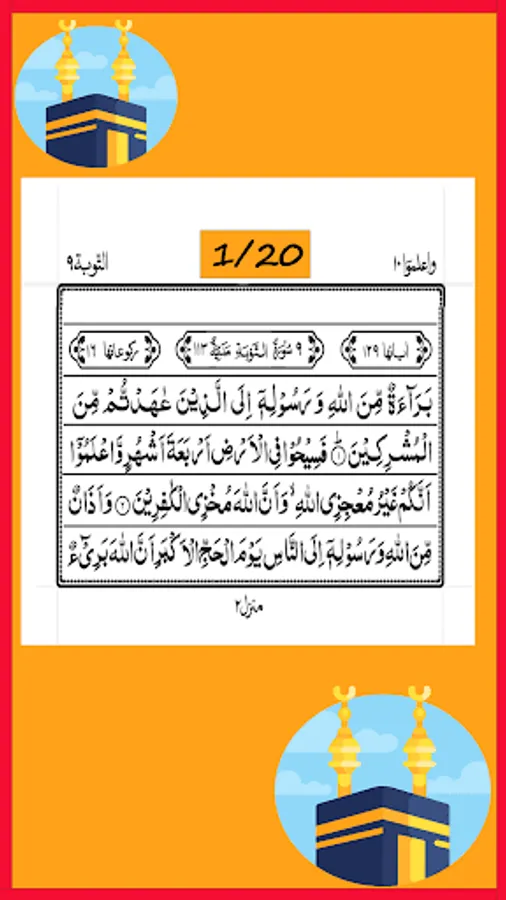 واعلموا ۱۰
1/20
التوبة ۹
اٰیاتها ۱۲۹
۹ سُوْرَةُ التَّوْبَةِ مَدَنِيَّةٌ ۱۱۳
رکوعاتها ۱۶
بَرَآءَةٌ مِّنَ اللّٰهِ وَرَسُوْلِهٖۤ اِلَى الَّذِيْنَ عٰهَدْتُّمْ مِّنَ
الْمُشْرِكِيْنَ ؕ۝۱ فَسِيْحُوْا فِى الْاَرْضِ اَرْبَعَةَ اَشْهُرٍ وَّاعْلَمُوْۤا
اَنَّكُمْ غَيْرُ مُعْجِزِى اللّٰهِ ۙ وَاَنَّ اللّٰهَ مُخْزِى الْكٰفِرِيْنَ ۝۲ وَاَذَانٌ
مِّنَ اللّٰهِ وَرَسُوْلِهٖۤ اِلَى النَّاسِ يَوْمَ الْحَجِّ الْاَكْبَرِ اَنَّ اللّٰهَ بَرِىْٓءٌ
منزل ۲